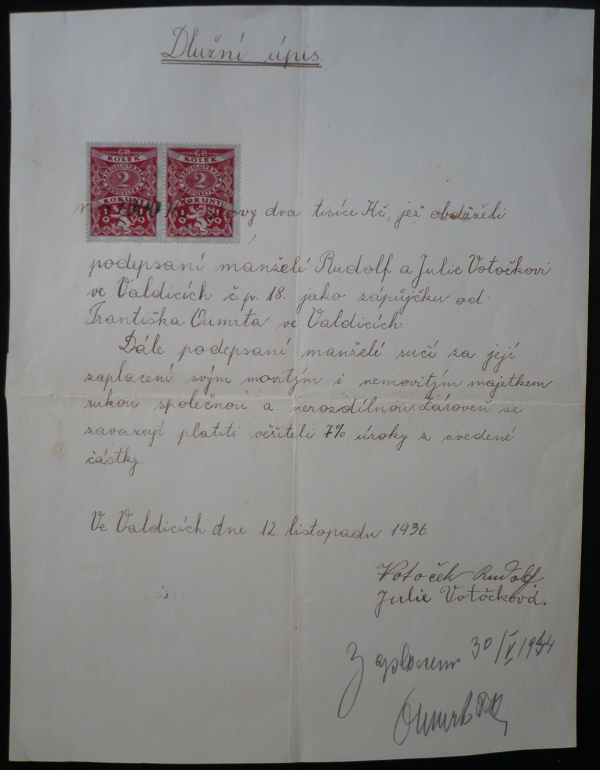 Dlužní úpis.
ČS ČS
KOLEK KOLEK
2 2
KORUNY KORUNY
na 2000 Kč, slovy dva tisíce Kč, jež obdrželi
podepsaní manželé Rudolf a Julie Votočkovi
ve Valdicích č.p. 18. jako zápůjčku od
Františka Oumrta ve Valdicích.
Dále podepsaní manželé ručí za její
zaplacení svým movitým i nemovitým majetkem
rukou společnou a nerozdílnou. Zároveň se
zavazují platiti věřiteli 7% úroky z uvedené
částky.
Ve Valdicích dne 12. listopadu 1936.
Votoček Rudolf
Julie Votočková.
Zaplaceno 30/V. 1944
Oumrt